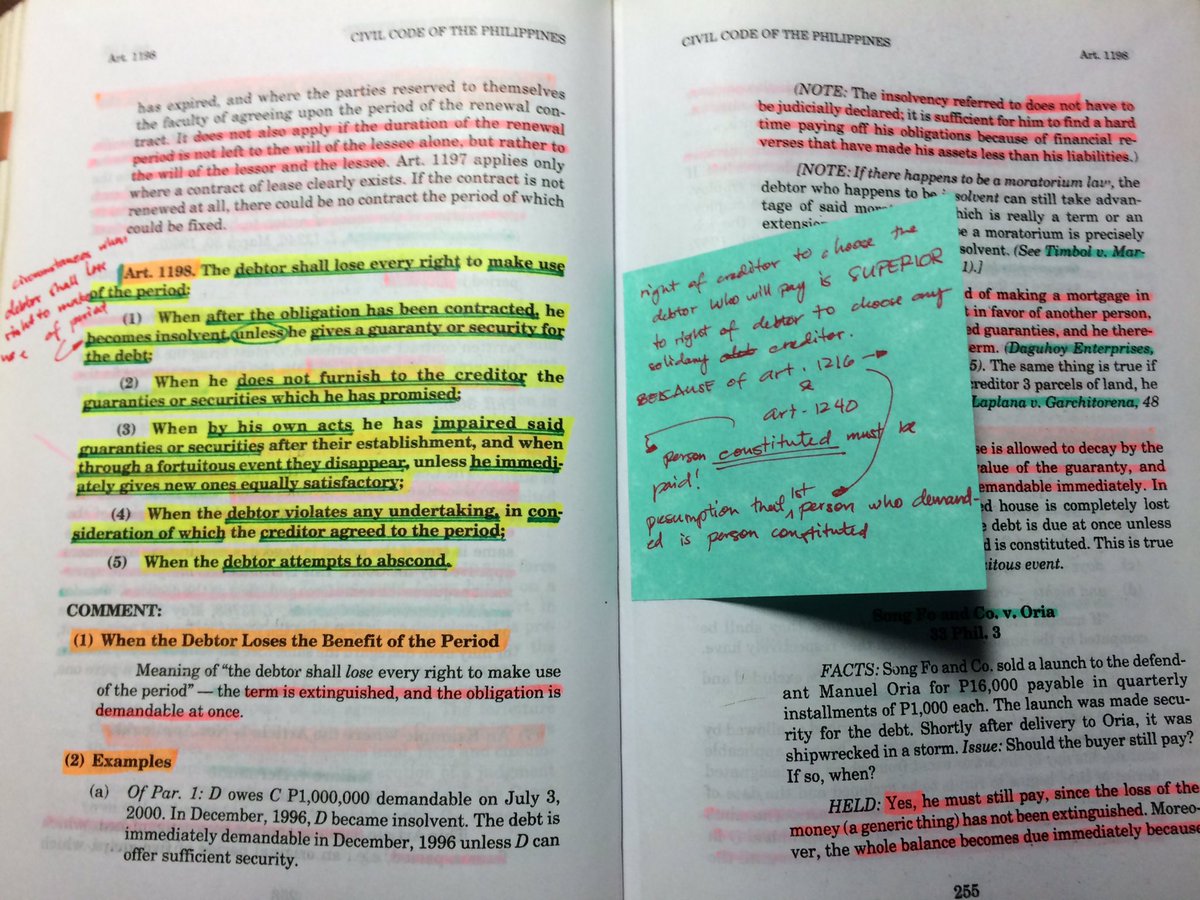 CIVIL CODE OF THE PHILIPPINES
Art. 1198
has expired, and where the parties reserved to themselves
the faculty of agreeing upon the period of the renewal con-
tract. It does not also apply if the duration of the renewal
period is not left to the will of the lessee alone, but rather to
the will of the lessor and the lessee. Art. 1197 applies only
where a contract of lease clearly exists. If the contract is not
renewed at all, there could be no contract the period of which
could be fixed.
circumstances when
debtor shall lose
right to make
use of period
Art. 1198. The debtor shall lose every right to make use
of the period:
(1) When after the obligation has been contracted, he
becomes insolvent, unless he gives a guaranty or security for
the debt;
(2) When he does not furnish to the creditor the
guaranties or securities which he has promised;
(3) When by his own acts he has impaired said
guaranties or securities after their establishment, and when
through a fortuitous event they disappear, unless he immedi-
ately gives new ones equally satisfactory;
(4) When the debtor violates any undertaking, in con-
sideration of which the creditor agreed to the period;
(5) When the debtor attempts to abscond.
COMMENT:
(1) When the Debtor Loses the Benefit of the Period
Meaning of “the debtor shall lose every right to make use
of the period” — the term is extinguished, and the obligation is
demandable at once.
(2) Examples
(a) Of Par. 1: D owes C P1,000,000 demandable on July 3,
2000. In December, 1996, D became insolvent. The debt is
immediately demandable in December, 1996 unless D can
offer sufficient security.
CIVIL CODE OF THE PHILIPPINES
Art. 1198
(NOTE: The insolvency referred to does not have to
be judicially declared; it is sufficient for him to find a hard
time paying off his obligations because of financial re-
verses that have made his assets less than his liabilities.)
[NOTE: If there happens to be a moratorium law, the
debtor who happens to be solvent can still take advan-
tage of said which is really a term or an
a moratorium is precisely
solvent. (See Timbol v. Mar-
1).]
of making a mortgage in
in favor of another person,
guaranties, and he there-
erm. (Daguhoy Enterprises,
5). The same thing is true if
creditor 3 parcels of land, he
Laplana v. Garchitorena, 48
is allowed to decay by the
value of the guaranty, and
demandable immediately. In
house is completely lost
debt is due at once unless
is constituted. This is true
event.
right of creditor to choose the
debtor who will pay is SUPERIOR
to right of debtor to choose any
solidary creditor.
BECAUSE of art. 1216
&
art. 1240
person constituted must be
paid!
presumption that 1st person who demand-
ed is person constituted
Song Fo and Co. v. Oria
33 Phil. 3
FACTS: Song Fo and Co. sold a launch to the defend-
ant Manuel Oria for P16,000 payable in quarterly
installments of P1,000 each. The launch was made secu-
rity for the debt. Shortly after delivery to Oria, it was
shipwrecked in a storm. Issue: Should the buyer still pay?
If so, when?
HELD: Yes, he must still pay, since the loss of the
money (a generic thing) has not been extinguished. Moreo-
ver, the whole balance becomes due immediately because
255